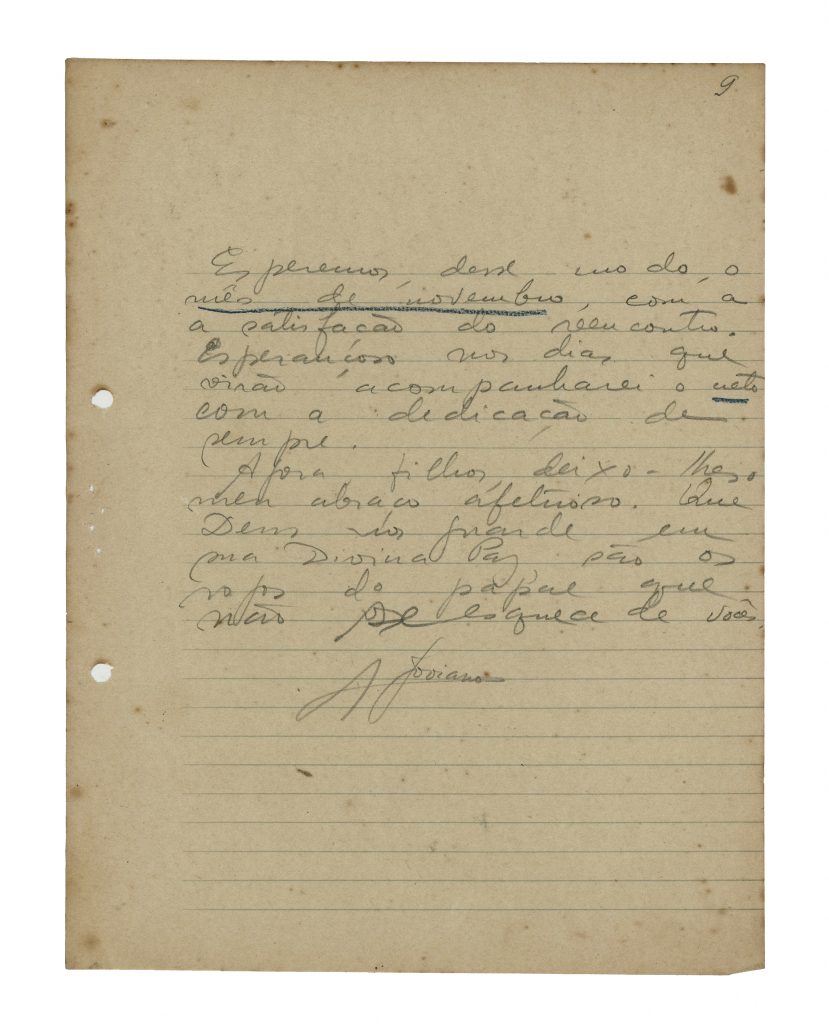 9
Esperemos, desse modo, o
mês de novembro, com a
a satisfação do reencontro.
Esperançoso nos dias que
virão acompanharei o neto
com a dedicação de
sempre.
Agora, filhos, deixo-lhes o
meu abraço afetuoso. Que
Deus nos guarde em
sua Divina Paz são os
votos do papae que
não se esquece de vocês,
A Joviano